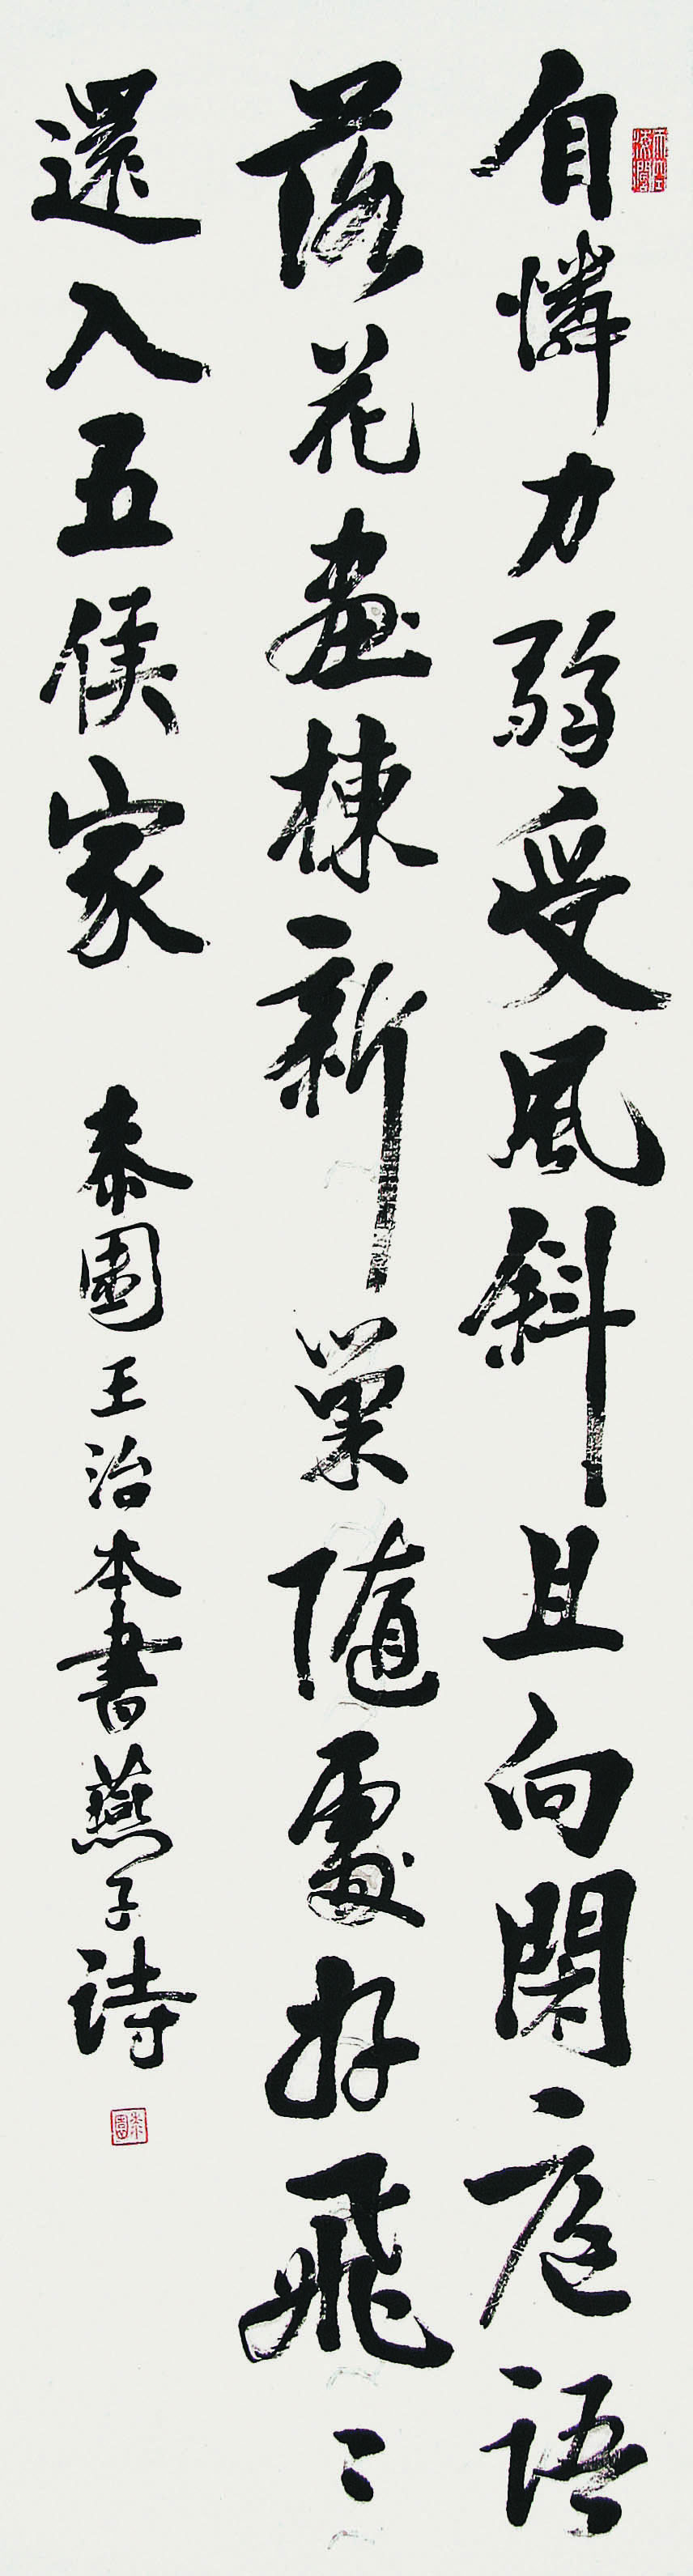 自憐力弱受風斜且向閑庭語
落花畫棟新巢隨處好飛〻
還入五侯家
桼園王治本書燕子詩
桼園